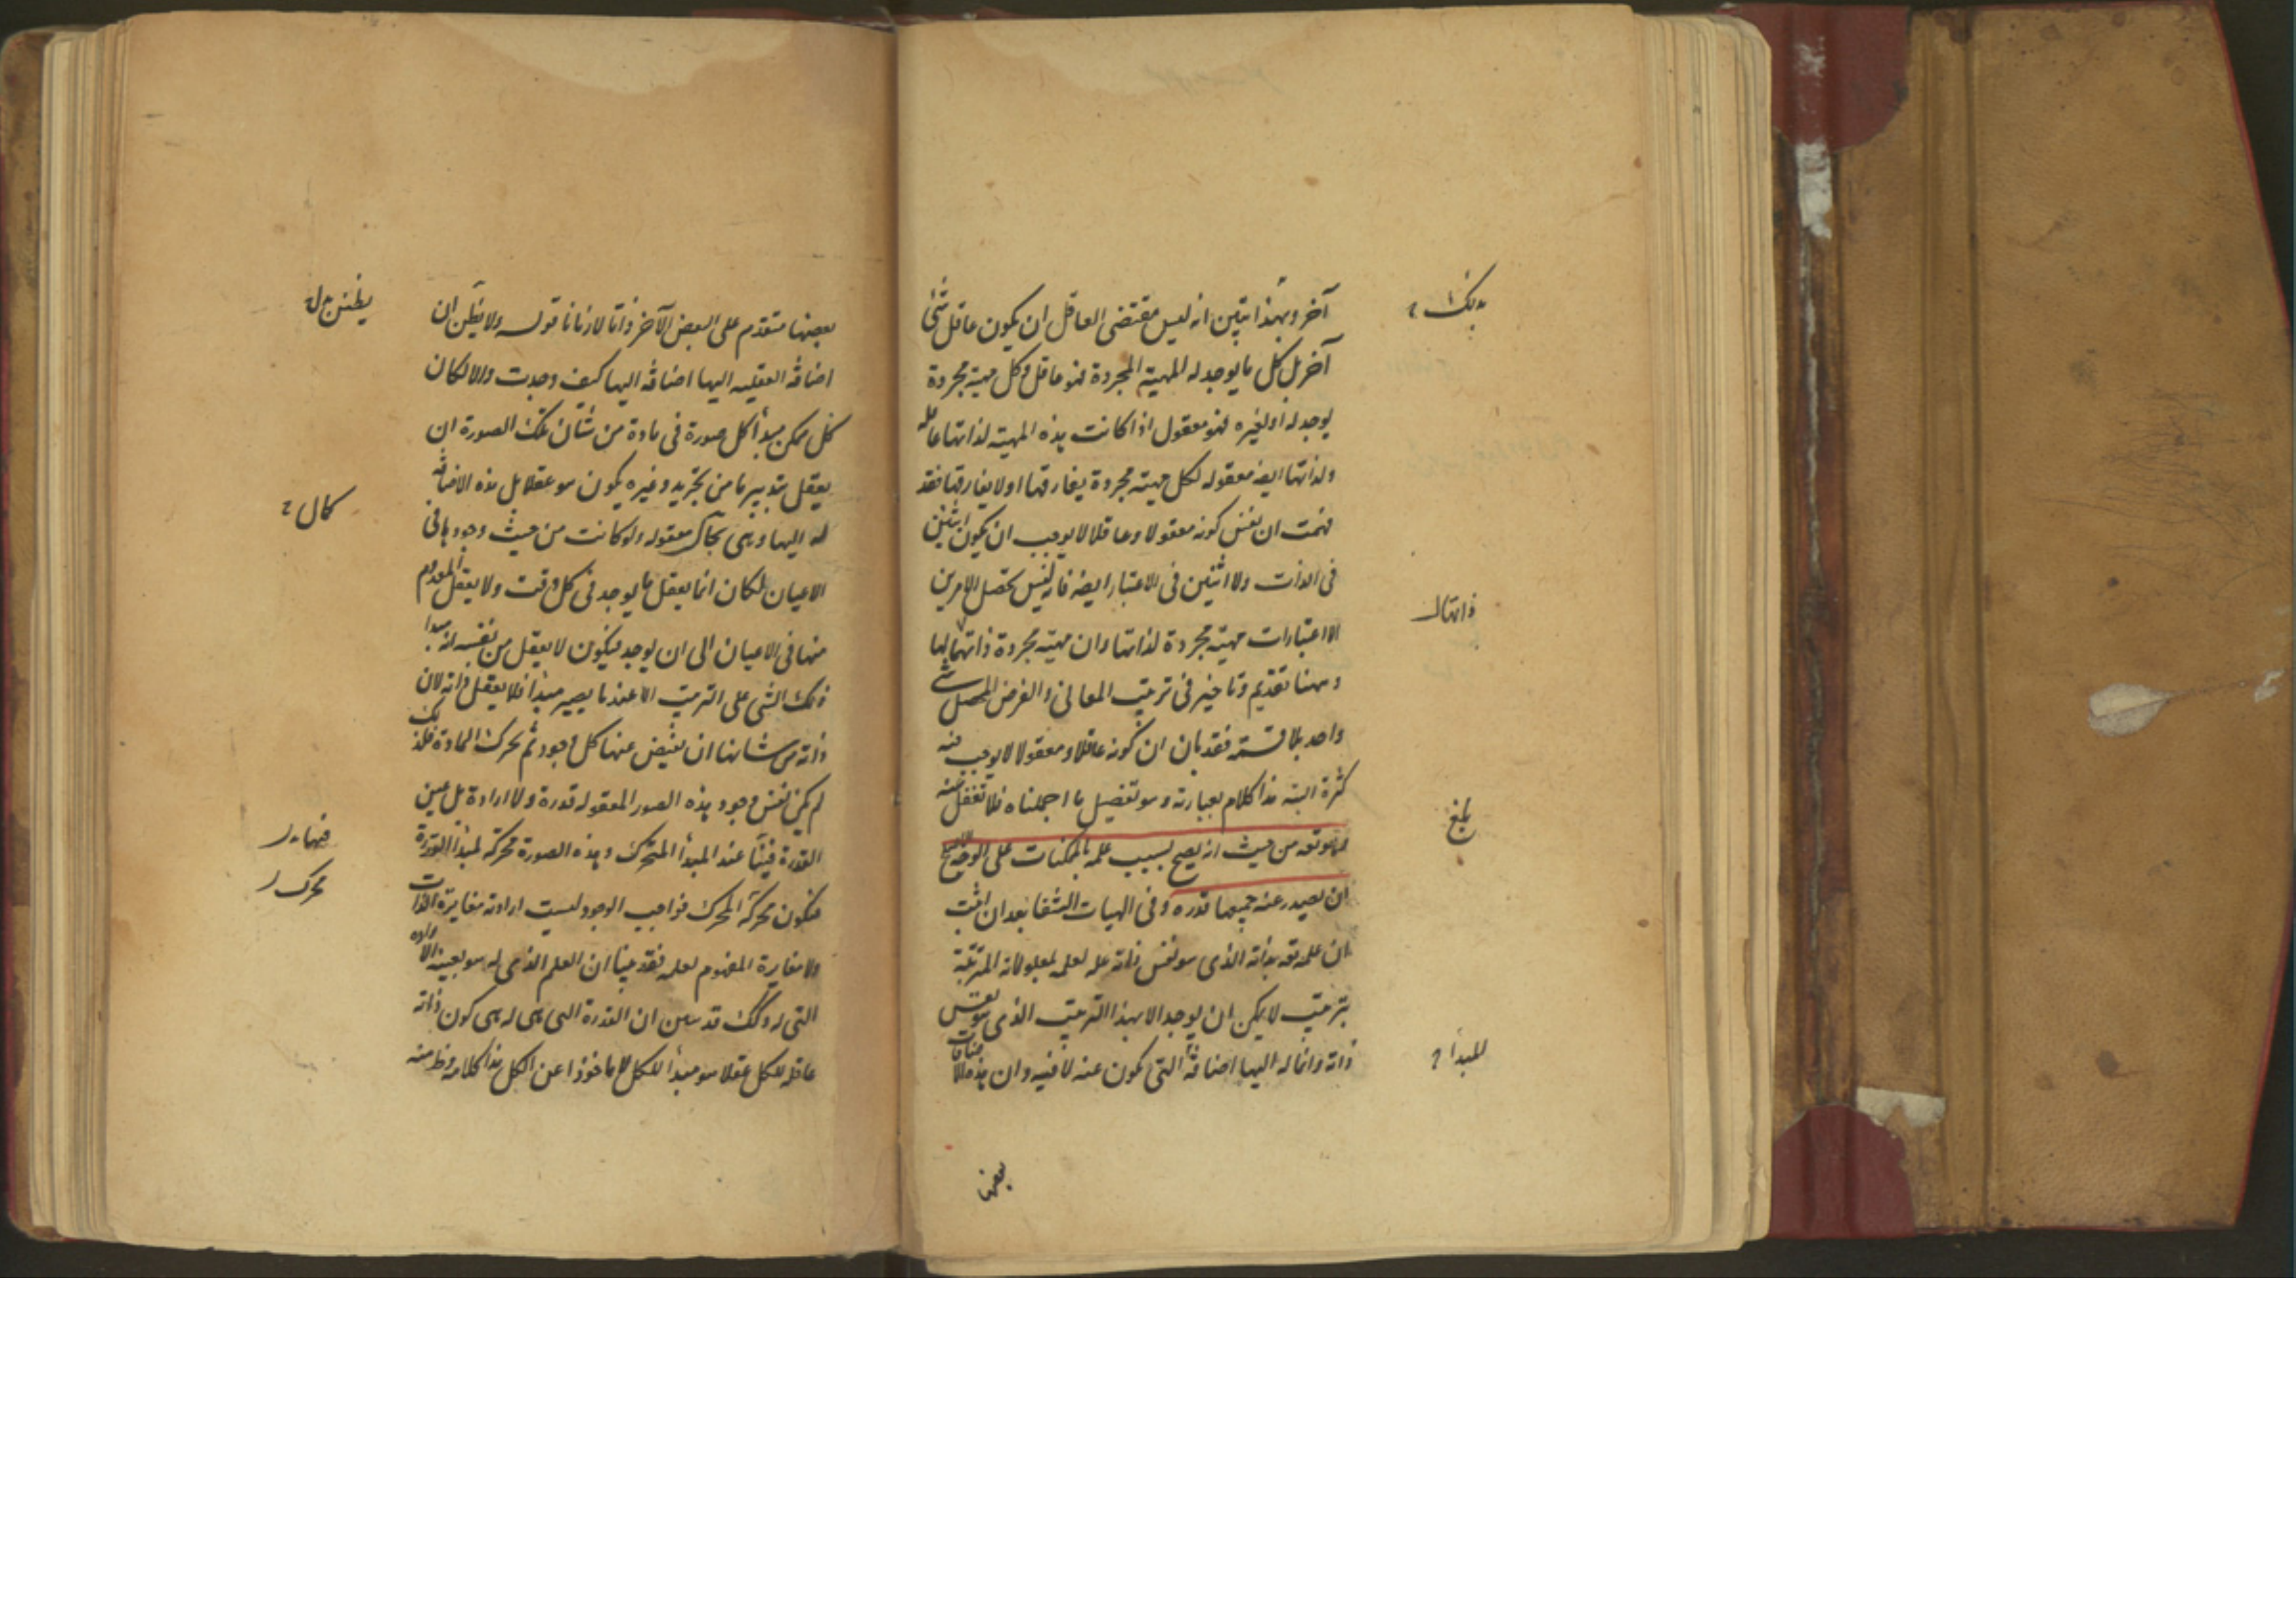 آخر وبهذا تبين انه ليس مقتضى العاقل ان يكون عاقل شئ
آخر بل كل ما يوجد له المهية المجردة فهو عاقل وكل مهية مجردة
يوجد له او لغيره فهو معقول اذا كانت هذه المهية لذاتها عاقلة
ولذاتها ايضا معقوله لكل مهية مجردة يفارقها اولا يفارقها فقد
فهمت ان نفس كونه معقولا وعاقلا لا يوجب ان يكون اثنين
فى الذات ولا اثنين فى الاعتبار ايضا فانه ليس تحصل الامرين
الا اعتبارات مهية مجردة لذاتها وان مهية مجردة ذاتها لها
وههنا تقديم وتاخير فى ترتيب المعانى والغرض المحصل شئ
واحد بلا قسمة فقد بان ان كونه عاقلا ومعقولا لا يوجب فيه
كثرة البته هذا كلامه بعبارته وهو تفصيل ما اجملناه فلا تغفل عنه
من حيث انه يصح بسبب علمه بالممكنات على الوجه
ان يصدر عنه جميعها قدره وفى الهيات الشفا بعد ان اثبت
ان علمه تعه بذاته الذى هو نفس ذاته علة لعلمه بمعلولاته المترتبة
بترتيب لا يمكن ان يوجد الا بهذا الترتيب الذى هو نفس
ذاته وانما له اليها اضافة التى تكون عنه لا فيه وان هذه الاضافات
بعضها
بذلك
ذاتها
بلغ
للمبدأ
بعضها متقدم على البعض الآخر ذاتا لا زمانا قوله ولا يظن ان
اضافه العقليه اليها اضافه اليها كيف وجدت والا لكان
كل ممكن مبدأ كل صورة فى مادة من شأن تلك الصورة ان
يعقل بتدبير ما من تجريد وغيره يكون هو عقلا بل هذه الاضافة
له اليها وهى بحال معقوله ولو كانت من حيث وجودها فى
الاعيان لكان انما يعقل ما يوجد فى كل وقت ولا يعقل المعدوم
منها فى الاعيان الى ان يوجد فيكون لا يعقل من نفسه انه مبدا
ذلك الشى على الترتيب الا عند ما يصير مبدأ فلا يعقل ذاته لان
ذاته من شانها ان يفيض عنها كل وجود ثم تحرك المادة فلذلك
لم يكن نفس وجود هذه الصور المعقوله قدرة ولا ارادة بل عين
القدرة فينا عند المبدأ المتحرك وهذه الصورة محركة لمبدأ القدرة
فيكون محركة المحرك فواجب الوجود ليست ارادته مغايرة الذات
ولا مغايرة المفهوم لعلمه فقد بينا ان العلم الذى له هو بعينه الارادة
التى له وكذلك قد تبين ان القدرة التى هى له هى كون ذاته
عاقله للكل عقلا هو مبدأ للكل لا ماخوذا عن الكل هذا كلامه وظ منه
يظنن
كال
فيها
محرك